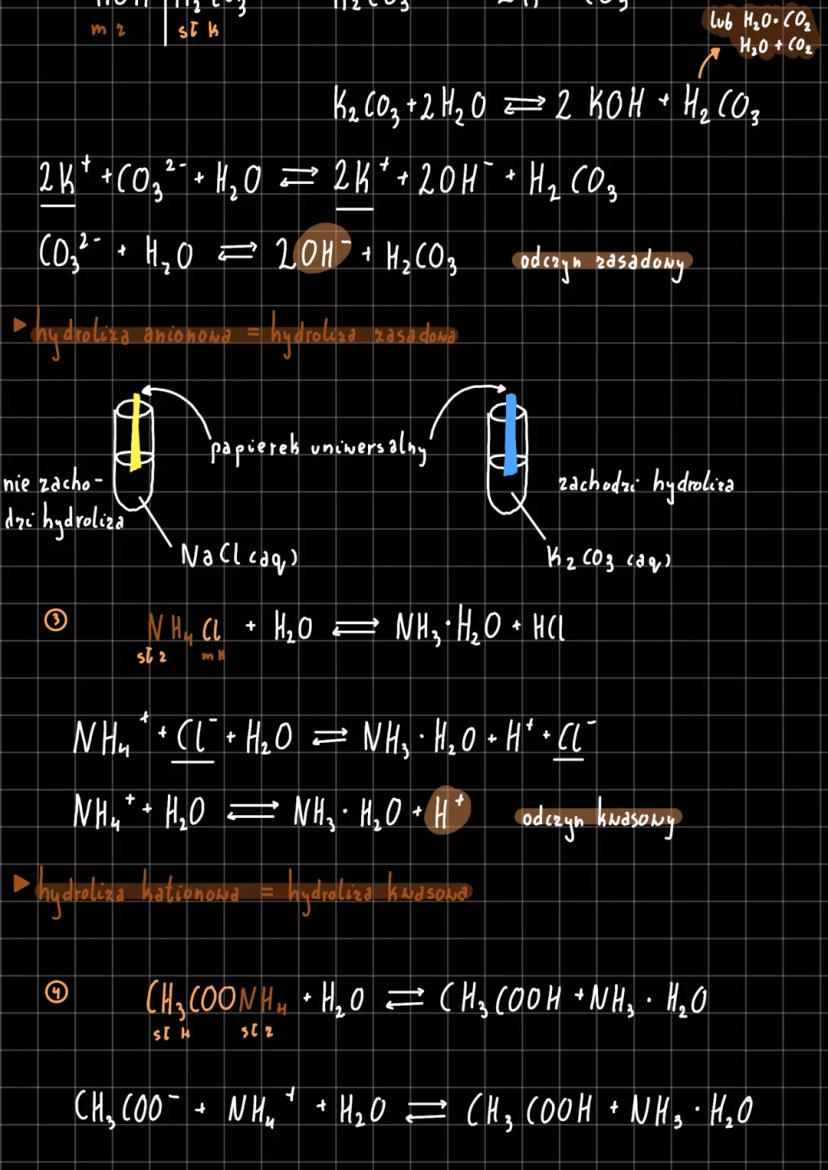 m z | sł k
lub H₂O·CO₂
H₂O + CO₂
K₂CO₃ + 2H₂O ⇌ 2 KOH + H₂CO₃
2K⁺ + CO₃²⁻ + H₂O ⇌ 2K⁺ + 2OH⁻ + H₂CO₃
CO₃²⁻ + H₂O ⇌ 2OH⁻ + H₂CO₃ odczyn zasadowy
▶ hydroliza anionowa = hydroliza zasadowa
papierek uniwersalny
nie zacho-
dzi hydroliza
zachodzi hydroliza
NaCl (aq)
K₂CO₃ (aq)
③ NH₄Cl + H₂O ⇌ NH₃·H₂O + HCl
sł z m k
NH₄⁺ + Cl⁻ + H₂O ⇌ NH₃·H₂O + H⁺ + Cl⁻
NH₄⁺ + H₂O ⇌ NH₃·H₂O + H⁺ odczyn kwasowy
▶ hydroliza kationowa = hydroliza kwasowa
④ CH₃COONH₄ + H₂O ⇌ CH₃COOH + NH₃·H₂O
sł k sł z
CH₃COO⁻ + NH₄⁺ + H₂O ⇌ CH₃COOH + NH₃·H₂O